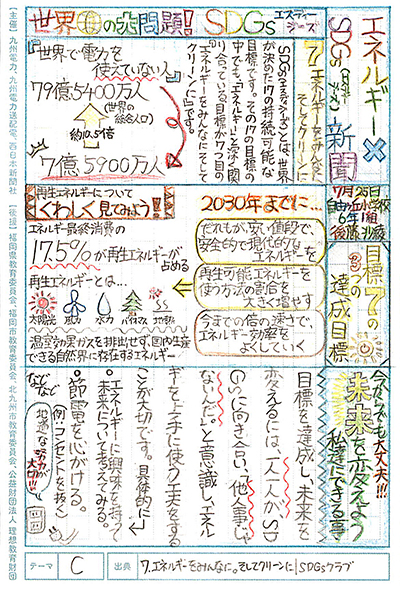 エネルギー×
SDGs 新聞
7月25日
自由ヶ丘小学校
6年1組
後藤 沙綾
世界の大問題! SDGs
エスディージーズ
7 エネルギーをみんなに
そしてクリーンに
SDGs(エスディージーズ)とは、世界
が決めた17の持続可能な
目標です。その17の目標の
中でも、「エネルギー」と深く関
り合っている目標が7つ目の
「エネルギーをみんなにそして
クリーンに」です。
『世界で電力を
使えていない人』
79億5400万人
(世界の
総合人口)
約10.5倍
7億5900万人
目標7の
3つの
達成目標
2030年までに…
だれもが、安い値段で、
安全的で現代的なエネルギーを
再生可能エネルギーを
使う方法の割合を
大きく増やす
今までの倍の速さで、
エネルギー効率を
よくしていく
再生エネルギーについて
くわしく見てみよう!
エネルギー最終消費の
17.5%が再生エネルギーが
占める
再生エネルギーとは…
太陽光 風力 水力 バイオマス 地熱
温室効果ガスを排出せず、国内生産
できる自然界に存在するエネルギー
今からでも大丈夫!!!
未来を変えよう
私達にできる事
目標を達成し、未来を
変えるには、一人一人がSD
Gsに向き合い、「他人事じゃ
ないんだ」と意識し、エネル
ギーを上手に使う工夫をする
ことが大切です。具体的に…
・エネルギーに興味を持って
未来について考えてみる。
・節電を心がける。
例.コンセントを抜く
などなど
地道な努力が
大切!!
テーマ C 出典 7.エネルギーをみんなに。そしてクリーンに|SDGsクラブ
【主催】九州電力、九州電力送配電、西日本新聞社 【後援】福岡県教育委員会、福岡市教育委員会、北九州市教育委員会、公益財団法人 理想教育財団